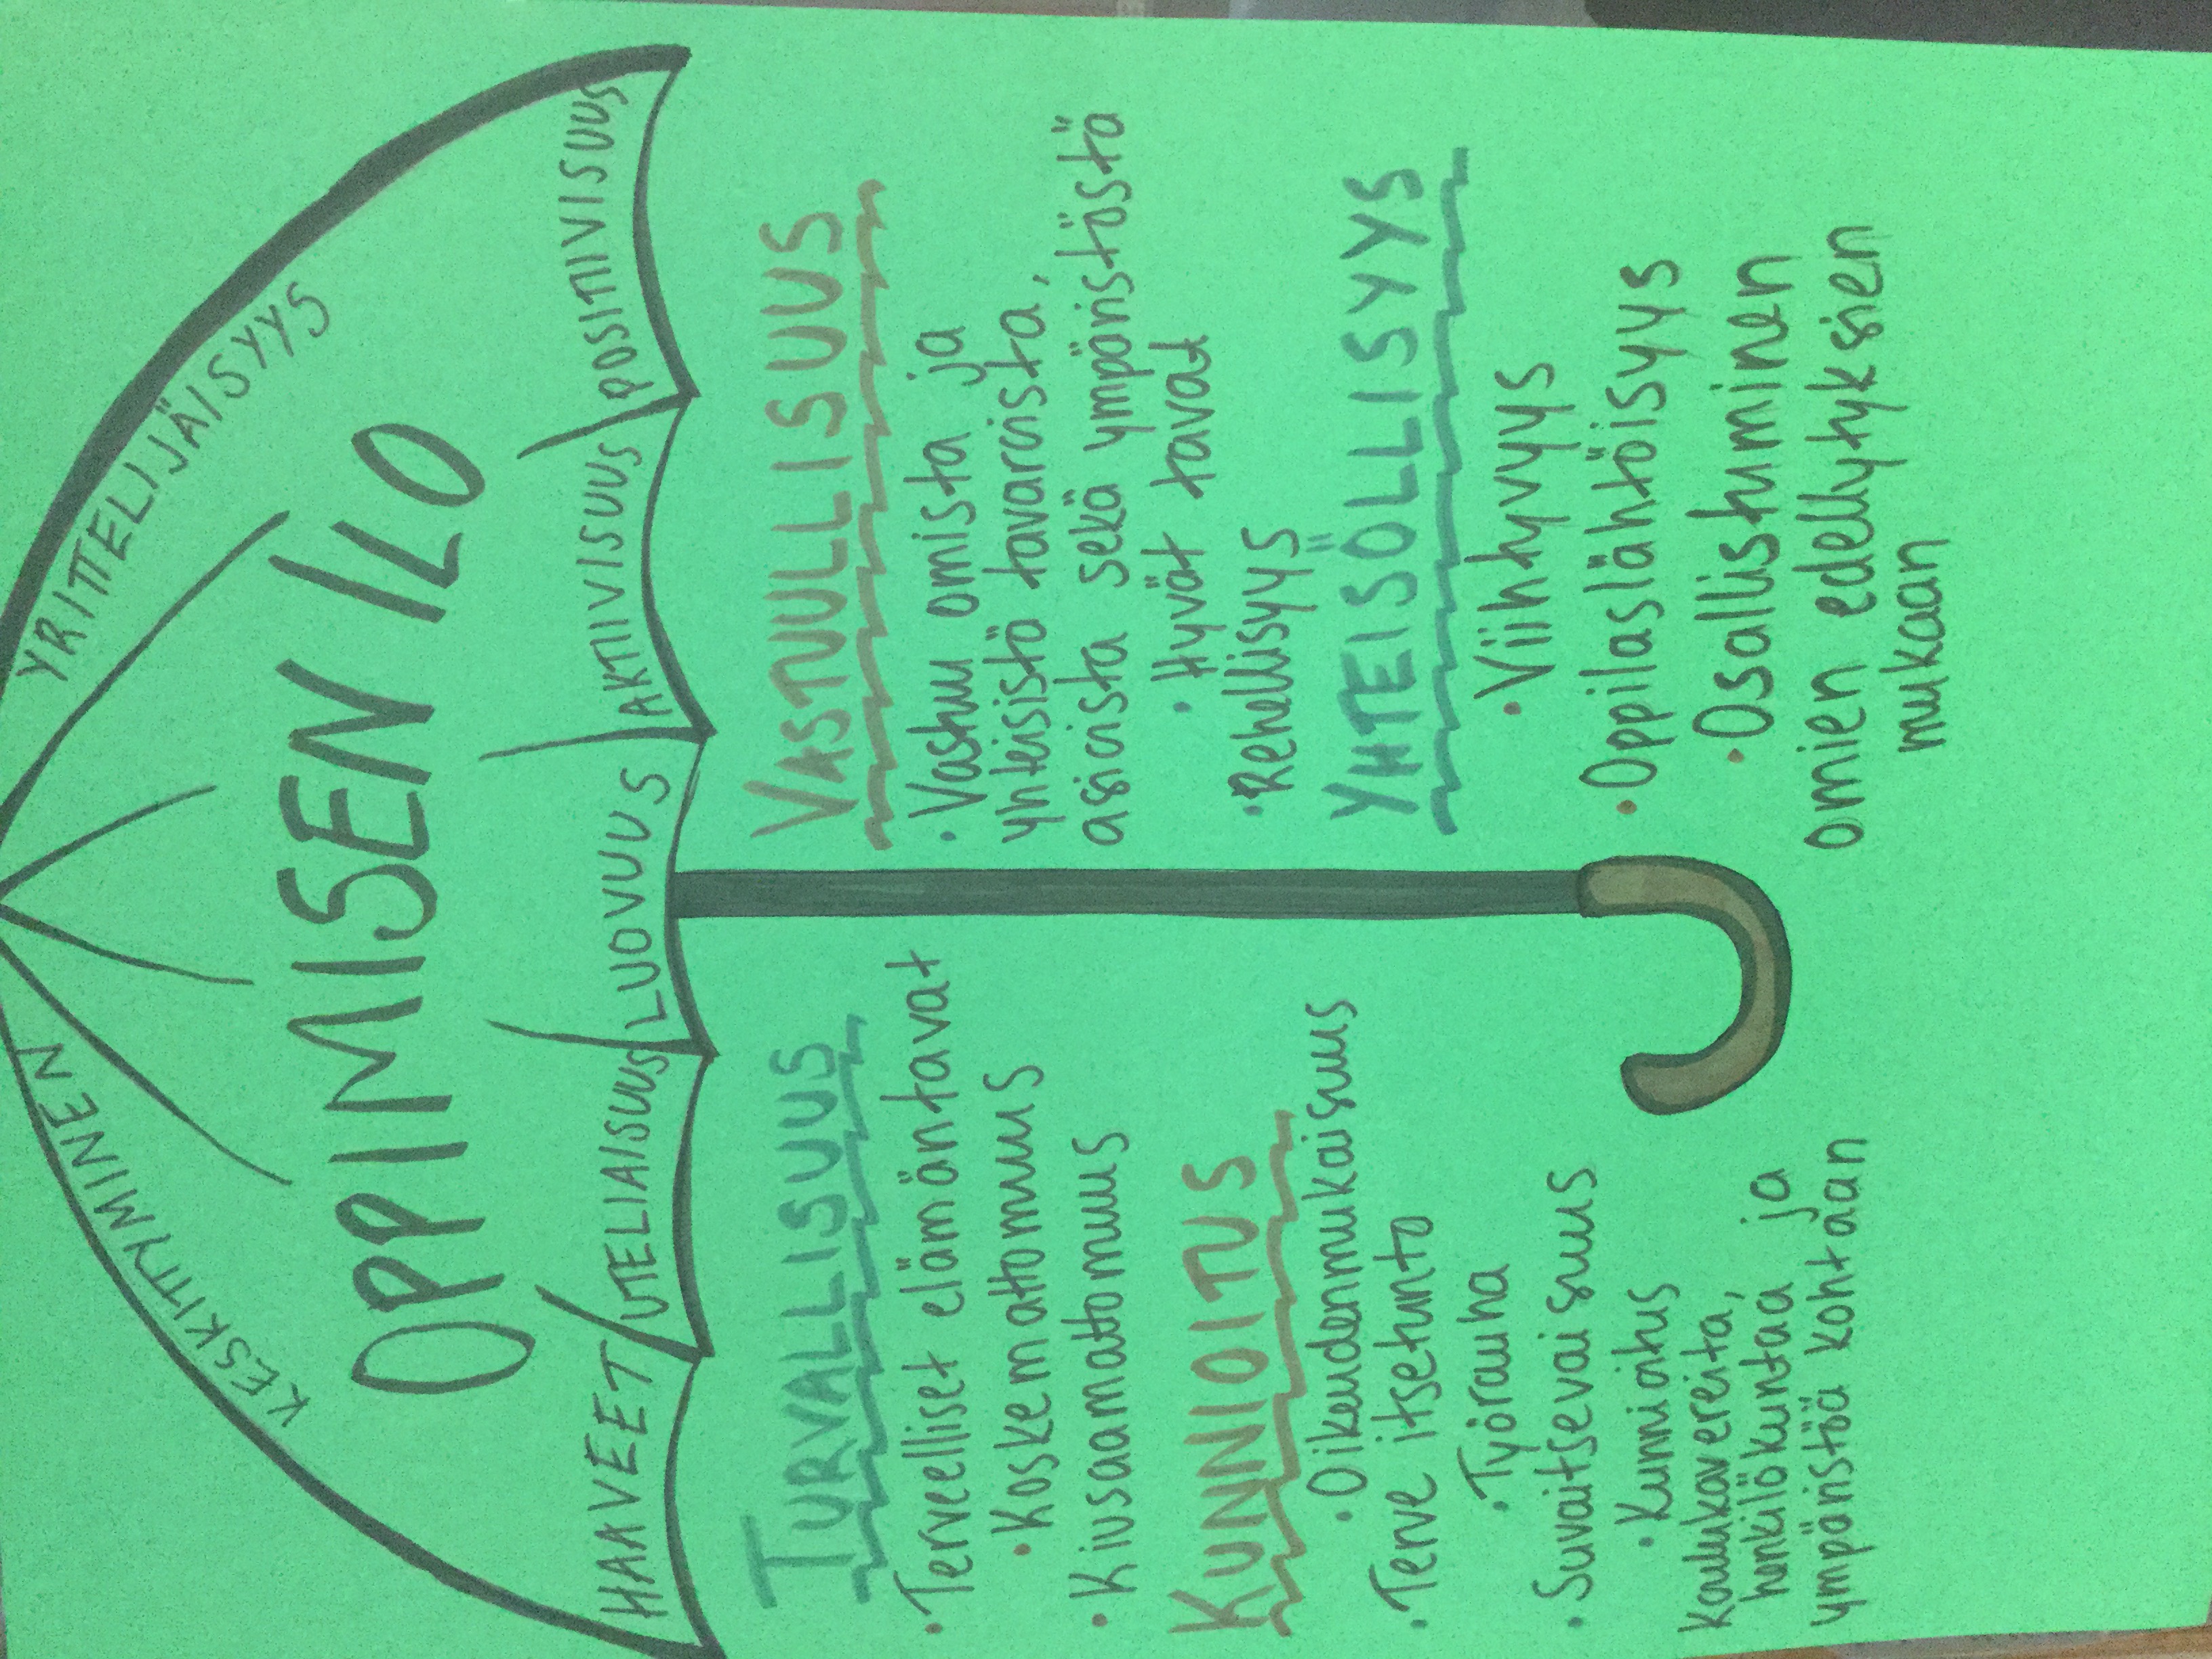 KESKITTYMINEN
YRITTELIJÄISYYS
OPPIMISEN ILO
HAAVEET
UTELIAISUUS
LUOVUUS
AKTIIVISUUS
POSITIIVISUUS
TURVALLISUUS
• Terveelliset elämäntavat
• Koskemattomuus
• Kiusaamattomuus
KUNNIOITUS
• Oikeudenmukaisuus
• Terve itsetunto
• Työrauha
• Suvaitsevaisuus
• Kunnioitus
koulukavereita,
henkilökuntaa ja
ympäristöä kohtaan
VASTUULLISUUS
• Vastuu omista ja
yhteisistä tavaroista,
asioista sekä ympäristöstä
• Hyvät tavat
• Rehellisyys
YHTEISÖLLISYYS
• Viihtyvyys
• Oppilaslähtöisyys
• Osallistuminen
omien edellytyksien
mukaan